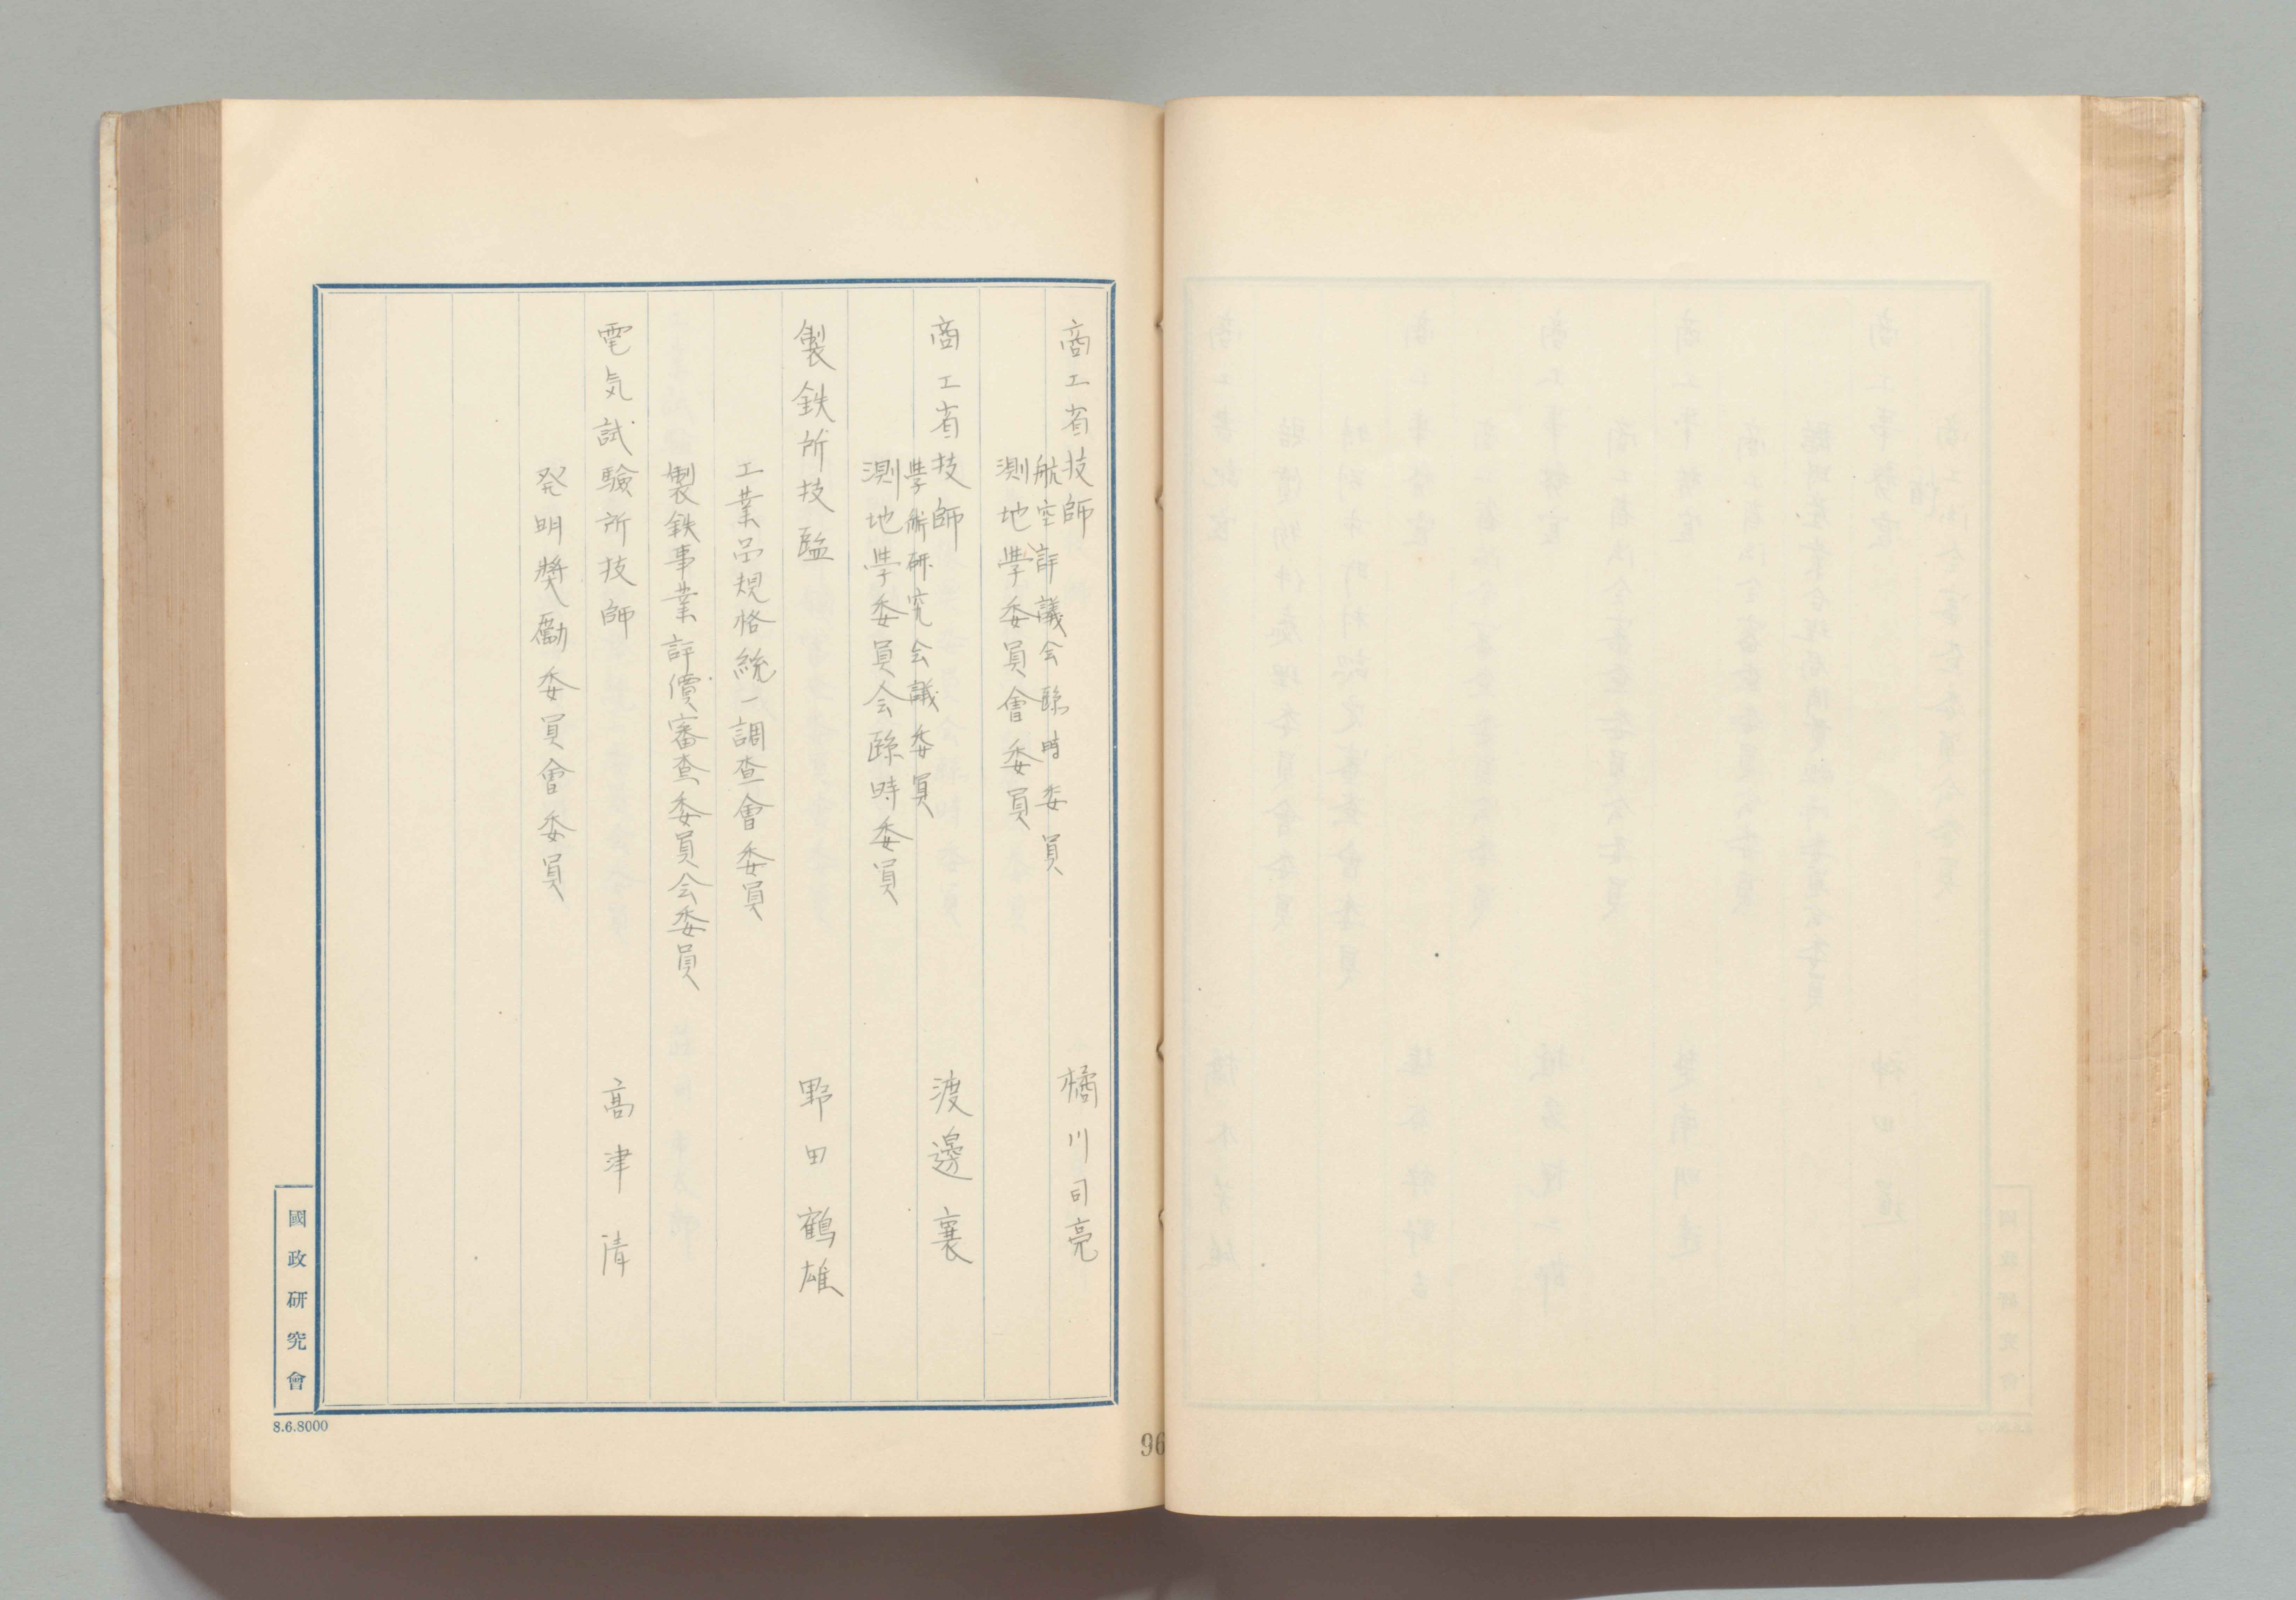 商工省技師 橘川司亮
航空評議会臨時委員
測地學委員會委員
商工省技師 渡邊襄
學術研究会議委員
測地學委員会臨時委員
製鉄所技監 野田鶴雄
工業品規格統一調査會委員
製鉄事業評價審査委員会委員
電気試驗所技師 高津清
発明奬勵委員會委員
國政研究會
8.6.8000
96